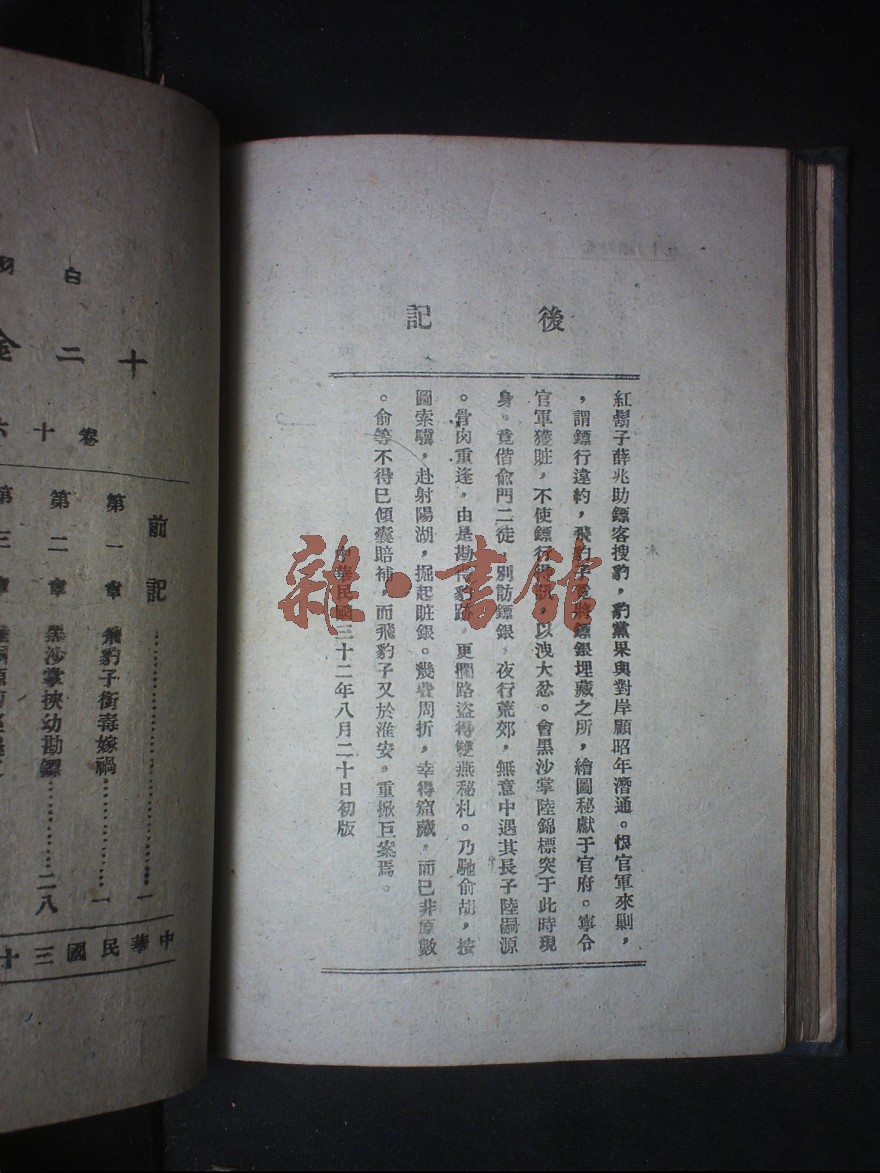 後記
紅鬍子薛兆助鏢客搜豹，豹黨果與對岸顧昭年潛通。恨官軍來剿，
，謂鏢行違約，飛豹子竟將鏢銀埋藏之所，繪圖秘獻于官府。寧令
官軍獲賍，不使鏢行得，以洩大忿。會黑沙掌陸錦標突于此時現
身。竟偕俞門二徒，別訪鏢銀，夜行荒郊，無意中遇其長子陸嗣源
。骨肉重逢，由是勘得豹跡，更攔路盜得雙燕秘札。乃馳俞胡，按
圖索驥，赴射陽湖，掘起賍銀。幾費周折，幸得窟藏，而已非原數
。俞等不得已傾囊賠補，而飛豹子又於淮安，重掀巨案焉。
中華民國三十二年八月二十日初版
白羽
十二金
卷十六
前記……………一
第一章 飛豹子銜毒嫁禍……………一
第二章 黑沙掌挾幼勘鏢……………二八
第三章
中華民國三十
雜·書館